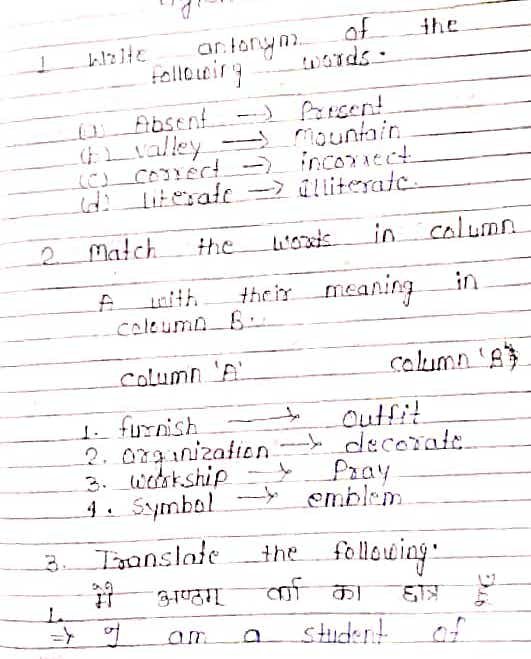 1 Write antonym of the
following words.
(a) Absent → Present
(b) valley → Mountain
(c) correct → incorrect
(d) literate → illiterate.
2 Match the words in column
A with their meaning in
coloumn B.
column 'A' column 'B'
1. furnish → outfit
2. organization → decorate
3. workship → Pray
4. Symbol → emblem
3. Translate the following.
1. मैं अष्ठम् वर्ग का छात्र हूँ
⇒ I am a student of